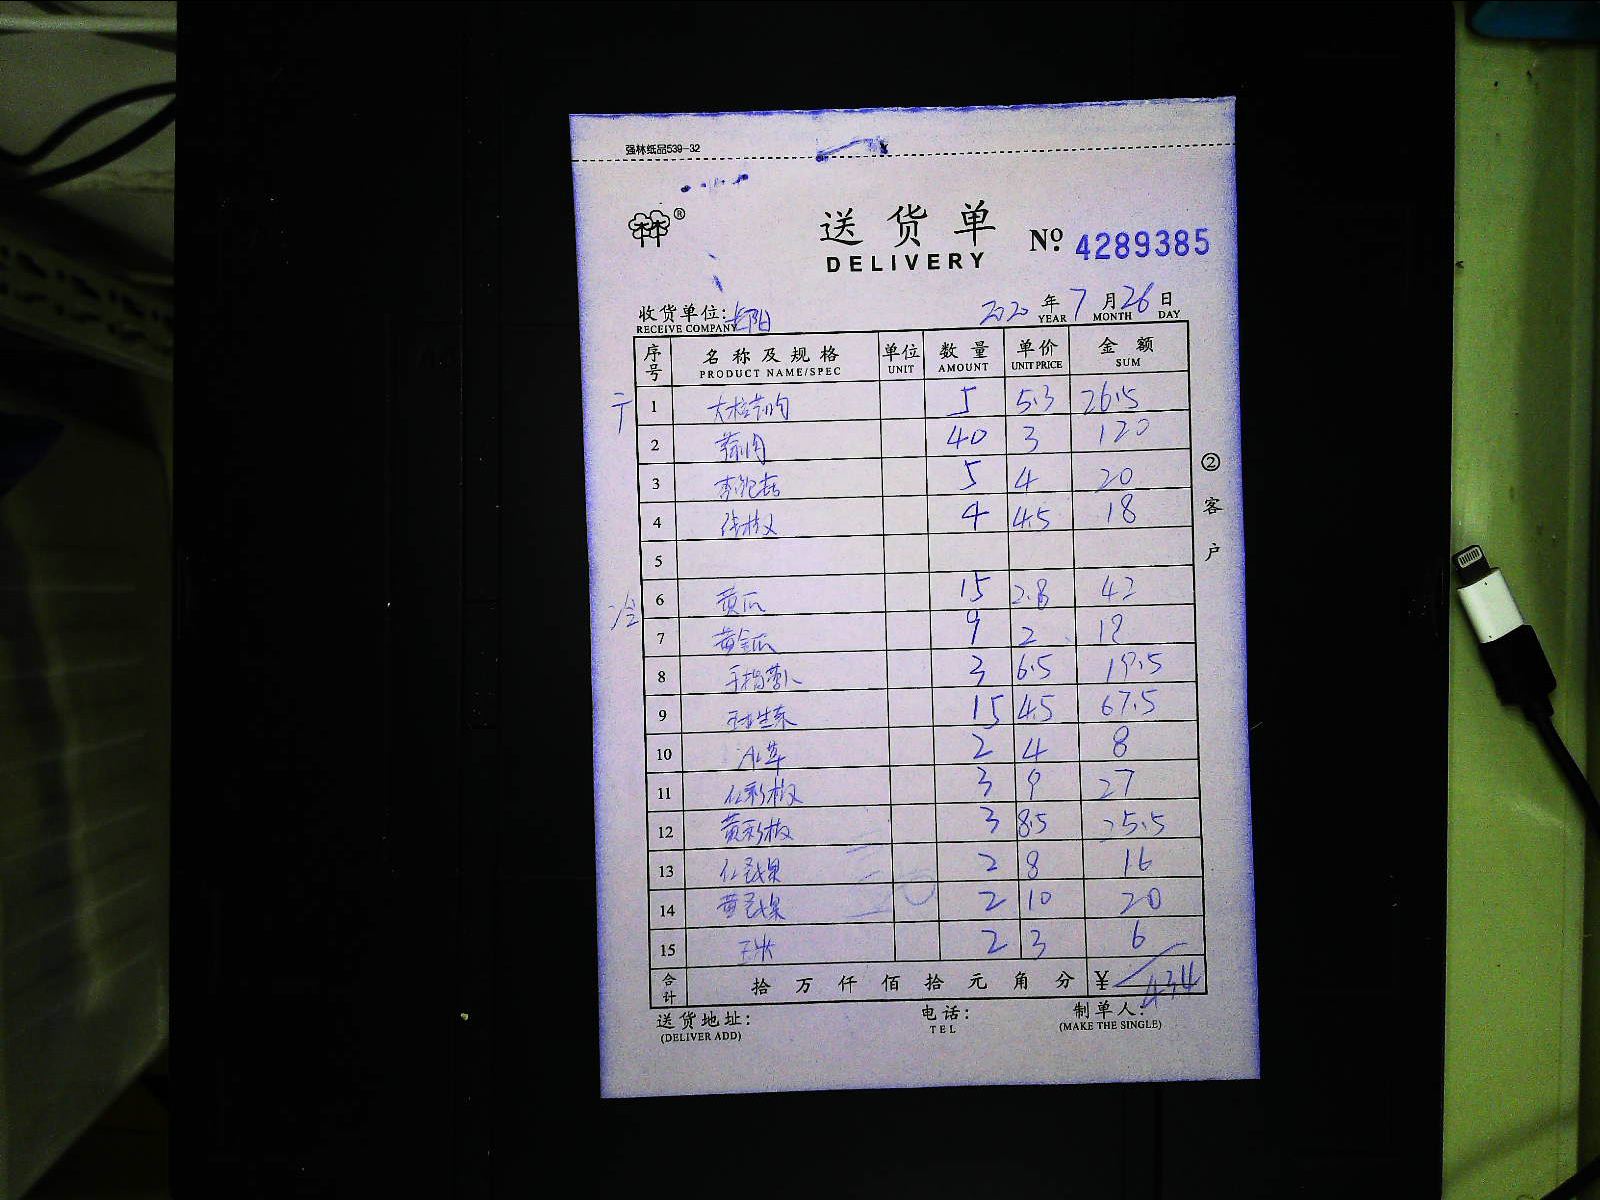 强林纸品539-32
林®
送货单 Nº 4289385
DELIVERY
收货单位: 2020年7月26日
RECEIVE COMPANY YEAR MONTH DAY
序号 名称及规格 单位 数量 单价 金额
PRODUCT NAME/SPEC UNIT AMOUNT UNIT PRICE SUM
1 5 5.3 26.5
2 40 3 120
3 5 4 20
4 4 4.5 18
5
6 黄瓜 15 2.8 42
冷
7 黄金瓜 9 2 18
8 手指萝卜 3 6.5 19.5
9 15 4.5 67.5
10 2 4 8
11 红彩椒 3 9 27
12 黄彩椒 3 8.5 25.5
13 2 8 16
14 2 10 20
15 玉米 2 3 6
合计 拾万仟佰拾元角分 ¥ 434
送货地址: 电话: 制单人:
(DELIVER ADD) TEL (MAKE THE SINGLE)
②客户